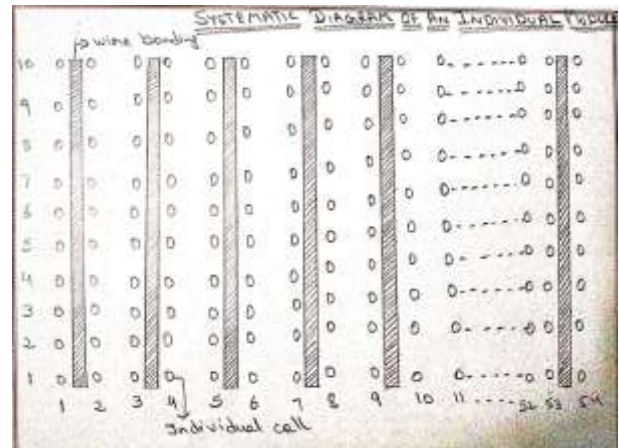 SYSTEMATIC DIAGRAM OF AN INDIVIDUAL MODULE
wire bonding
10
9
8
7
6
5
4
3
2
1
1 2 3 4 5 6 7 8 9 10 11 ...... 52 53 54
Individual cell